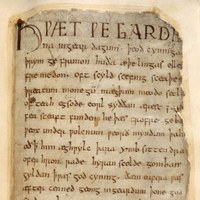 HǷÆT ǷE GARDE
na ingear dagum . þeod cyninga
þrym ge frunon huða æþelingas elle
fre medon . oft scyld scefing sceaþe
þreatum monegū mægþum meodo setla
of teah egsode eorl syððan ærest ƿear
fea sceaft funden he þæs frofre geba
ƿeox under ƿolcnum ƿeorð myndum þah
oð þæt him æghƿylc þara ymb sittendra
ofer hron rade hyran scolde gomban
gyldan þæt ƿæs god cyning . ðæm eafera ƿæs
æfter cenned geong in geardum þone god